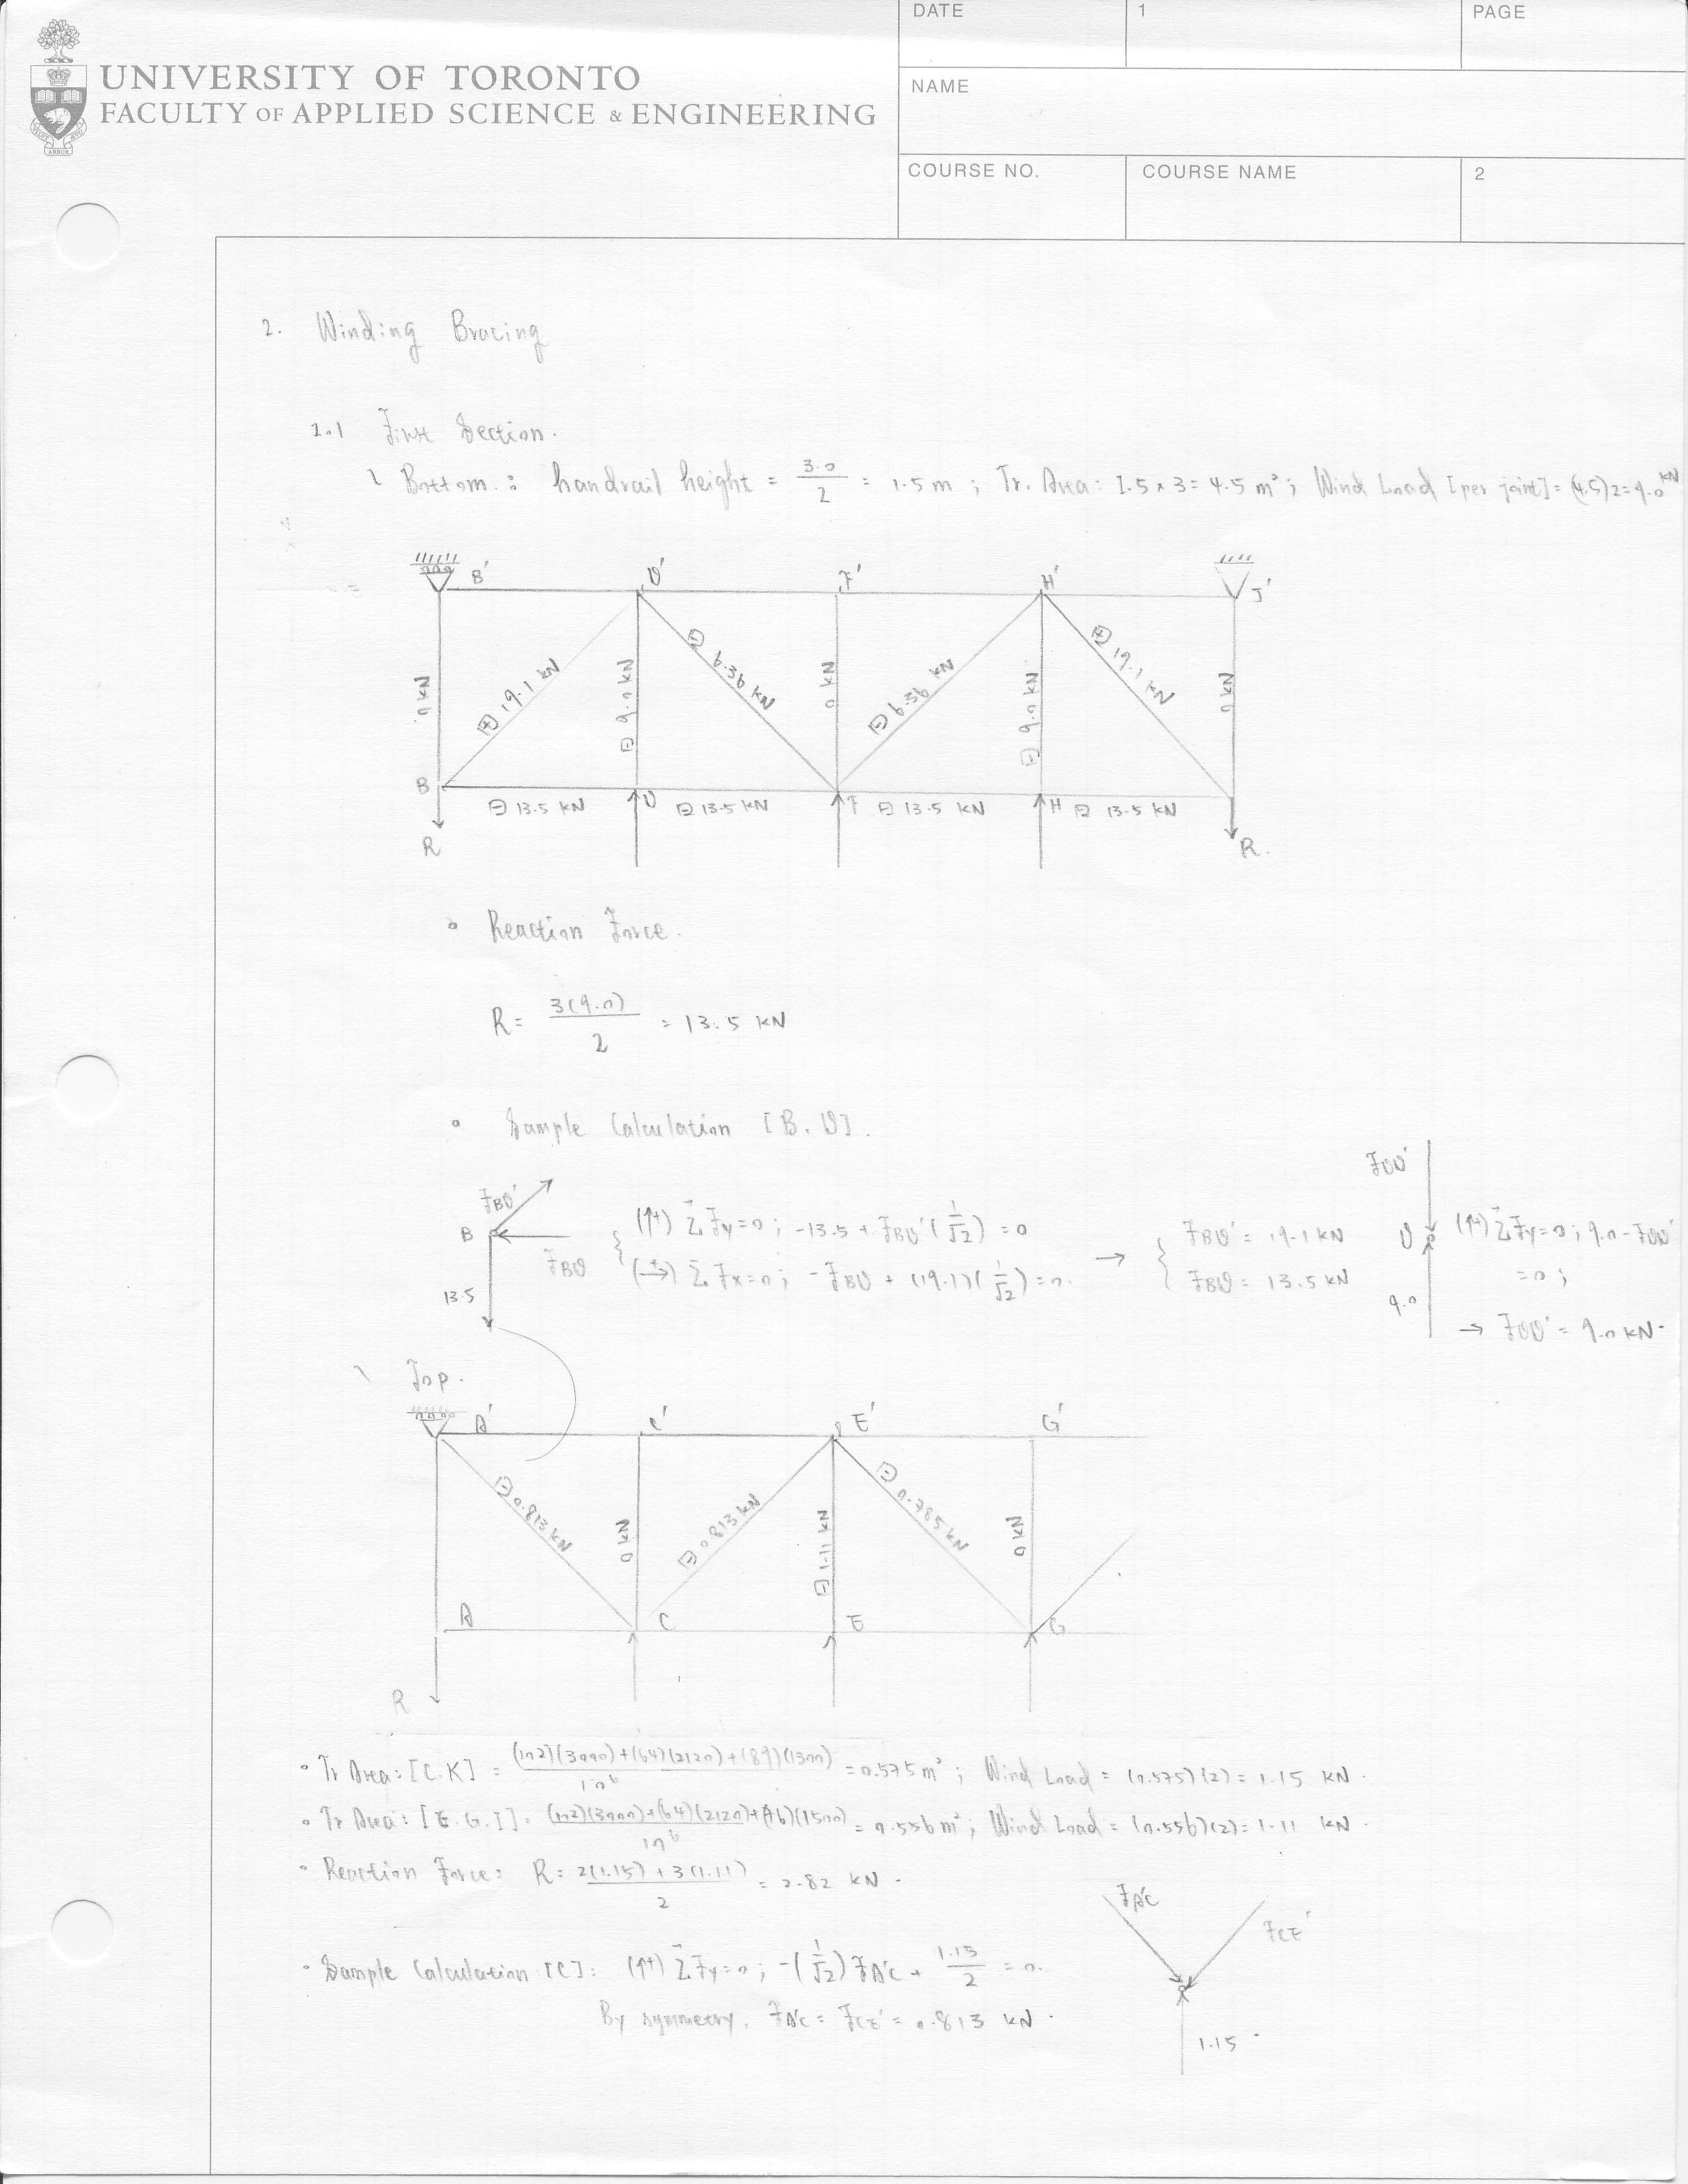 DATE
1
PAGE
UNIVERSITY OF TORONTO
FACULTY OF APPLIED SCIENCE & ENGINEERING
NAME
COURSE NO.
COURSE NAME
2
2. Winding Bracing
2.1 First Section.
Bottom : handrail height = 3.0/2 = 1.5 m ; Tr. Area: 1.5 × 3 = 4.5 m² ; Wind Load [per joint] = (4.5)2 = 9.0 kN
B' D' F' H' J'
0 kN
⊕ 19.1 kN
⊖ 9.0 kN
⊖ 6.36 kN
0 kN
⊖ 6.36 kN
⊖ 9.0 kN
⊕ 19.1 kN
0 kN
B D F H
⊖ 13.5 kN ⊖ 13.5 kN ⊖ 13.5 kN ⊖ 13.5 kN
R R.
° Reaction Force.
R = 3(9.0)/2 = 13.5 kN
° Sample Calculation [B, D].
FBD'
B
FBD
13.5
(↑+) ΣFy=0 ; -13.5 + FBD'(1/√2) = 0
(→+) ΣFx=0 ; -FBD + (19.1)(1/√2) = 0.
→ { FBD' = 19.1 kN
FBD = 13.5 kN
FDD'
D
9.0
(↑+) ΣFy=0 ; 9.0 - FDD'
= 0 ;
→ FDD' = 9.0 kN.
Top.
A' C' E' G'
⊖ 0.813 kN
0 kN
⊖ 0.813 kN
⊖ 1.11 kN
⊖ 0.785 kN
0 kN
A C E G
R
° Tr Area: [C.K] = (102)(3000)+(64)(2120)+(89)(1500)/10⁶ = 0.575 m² ; Wind Load = (0.575)(2) = 1.15 kN.
° Tr Area: [E.G.I] = (102)(3000)+(64)(2120)+(76)(1500)/10⁶ = 0.556 m² ; Wind Load = (0.556)(2) = 1.11 kN.
° Reaction Force: R = 2(1.15) + 3(1.11)/2 = 2.82 kN.
° Sample Calculation [C]: (↑+) ΣFy=0 ; -(1/√2) FA'C + 1.15/2 = 0.
By symmetry, FA'C = FCE' = 0.813 kN.
FA'C
FCE'
1.15